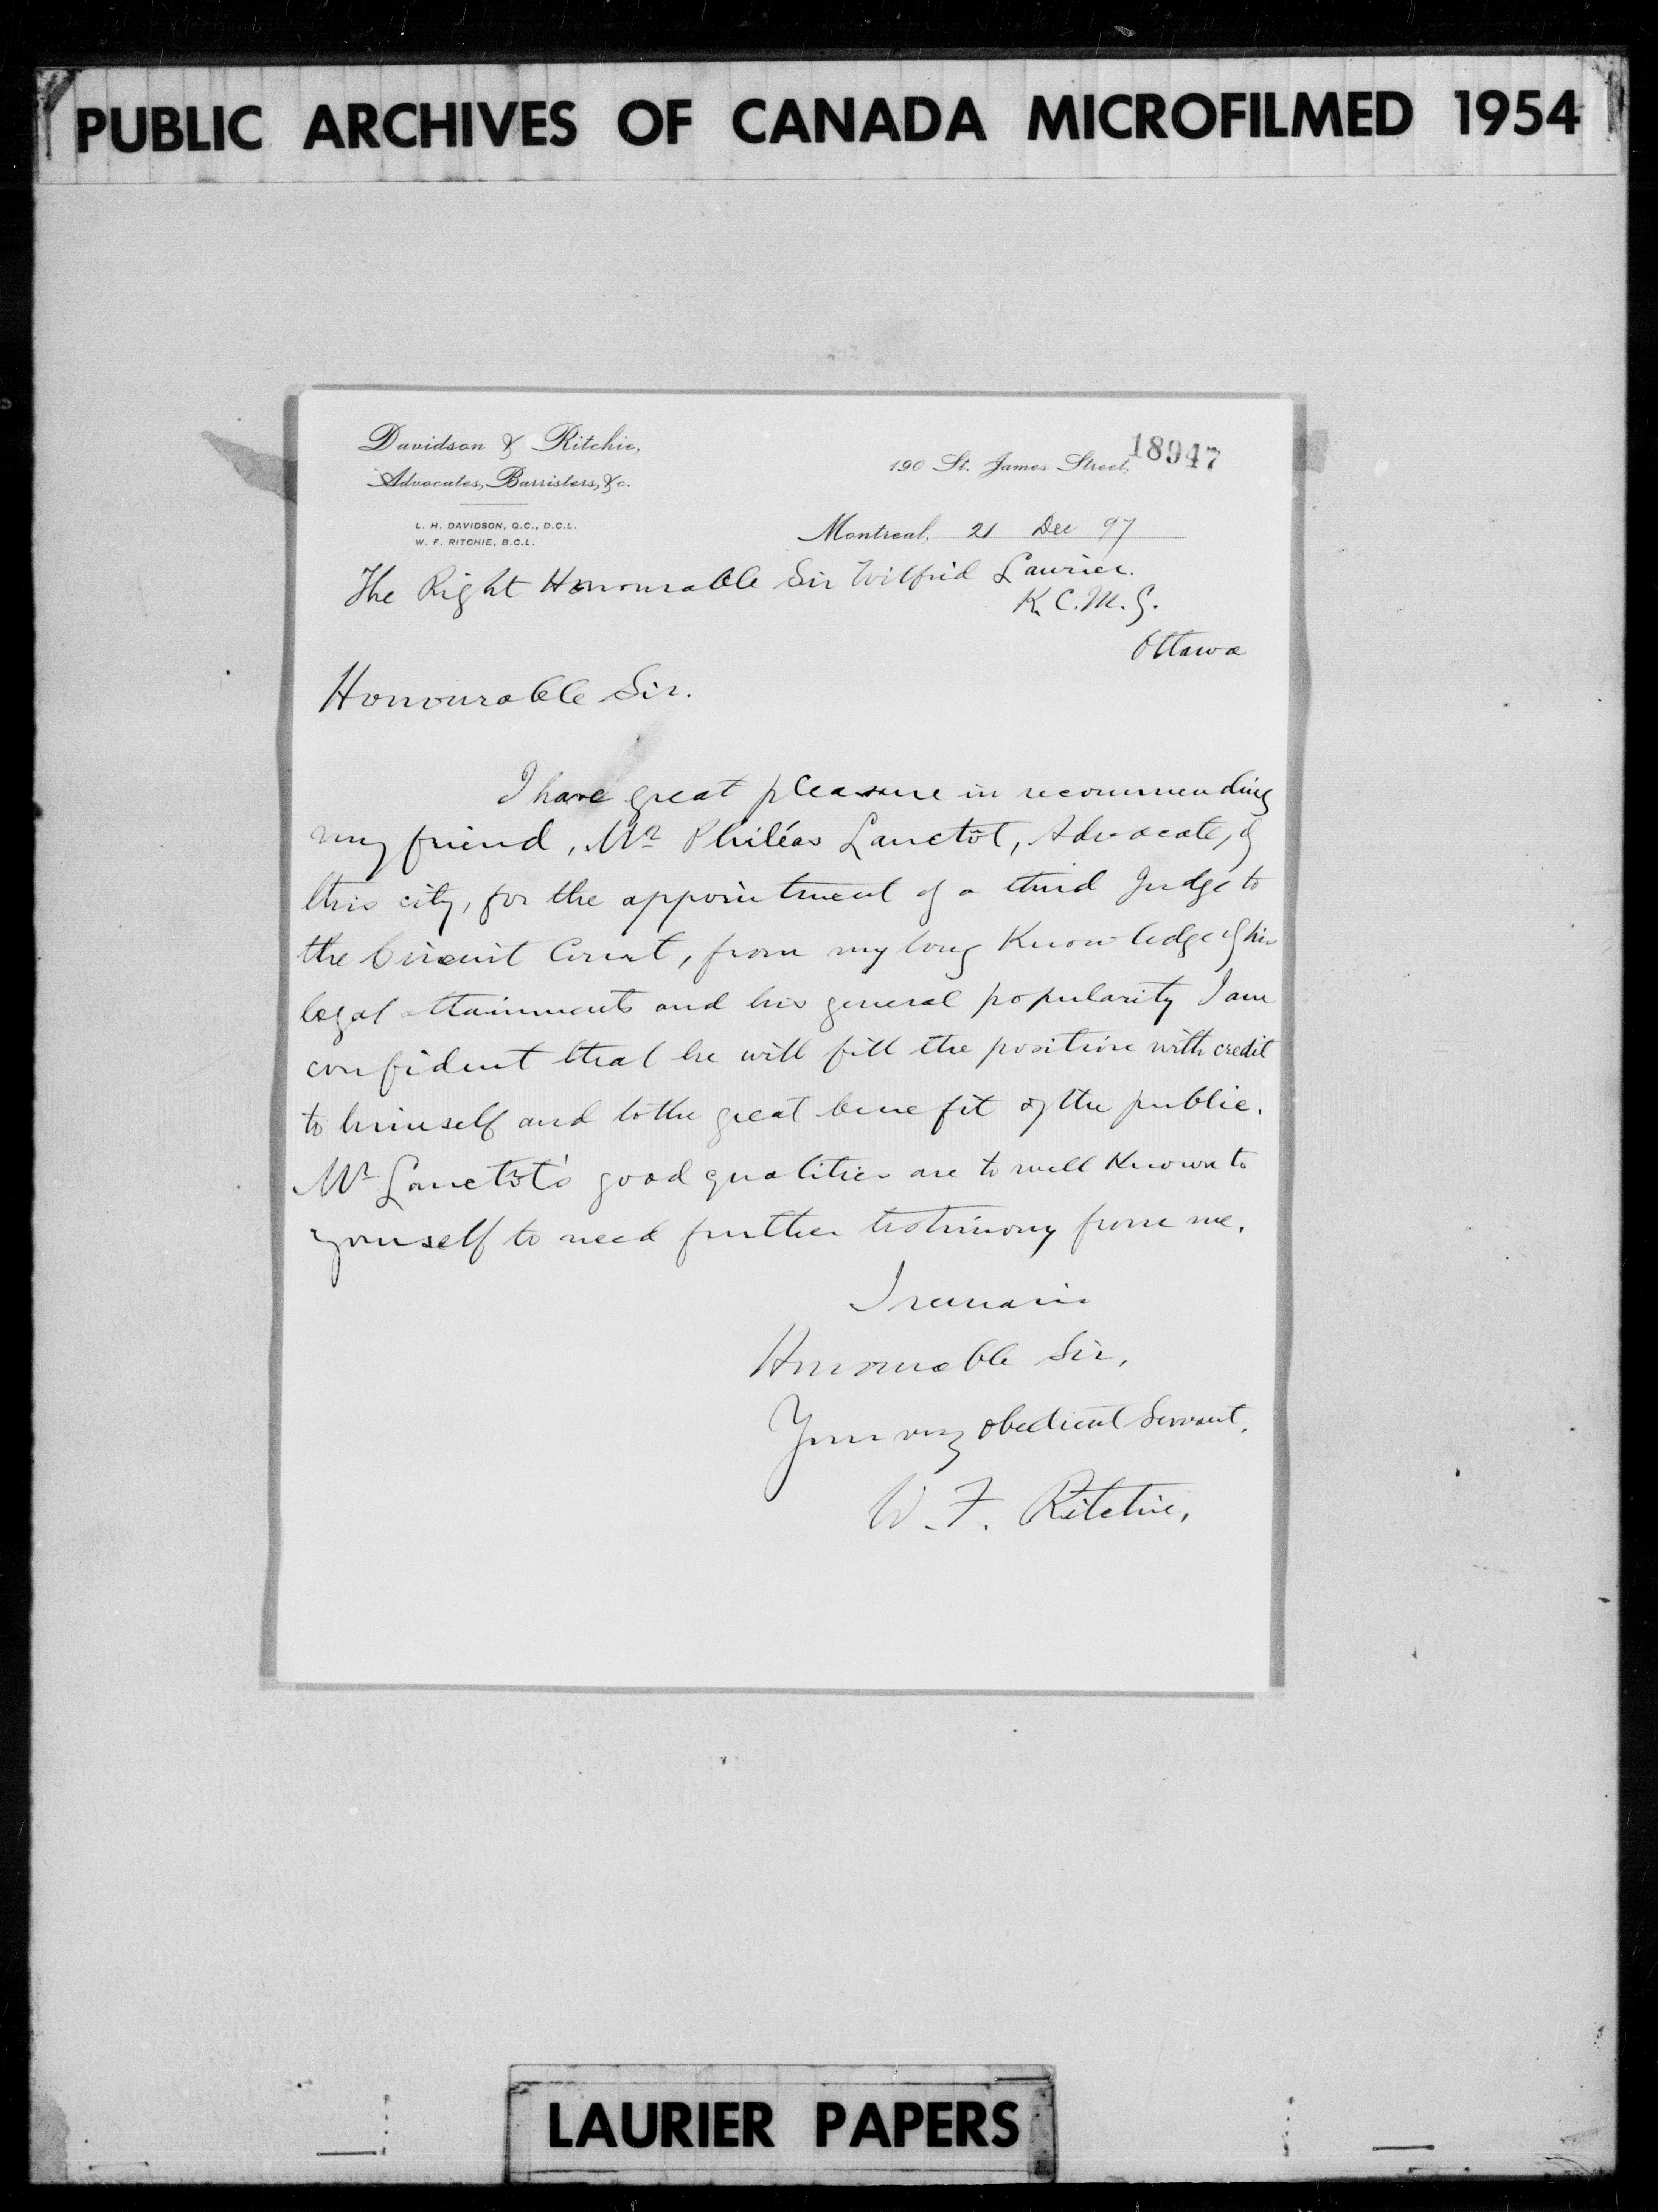 PUBLIC ARCHIVES OF CANADA MICROFILMED 1954
Davidson & Ritchie,
Advocates, Barristers, &c.
L. H. DAVIDSON, Q.C., D.C.L.
W. F. RITCHIE, B.C.L.
18947
190 St. James Street,
Montreal, 21 Dec 97
The Right Honourable Sir Wilfrid Laurier.
K.C.M.G.
Ottawa
Honourable Sir.
I have great pleasure in recommending
my friend, Mr Philéas Lanctôt, Advocate, of
this city, for the appointment of a third Judge to
the Circuit Court, from my long Knowledge of his
legal attainments and his general popularity I am
confident that he will fill the position with credit
to himself and to the great benefit of the public.
Mr Lanctôt's good qualities are to well Known to
yourself to need further testimony from me.
I remain
Honourable Sir,
Your very obedient Servant.
W. F. Ritchie,
LAURIER PAPERS